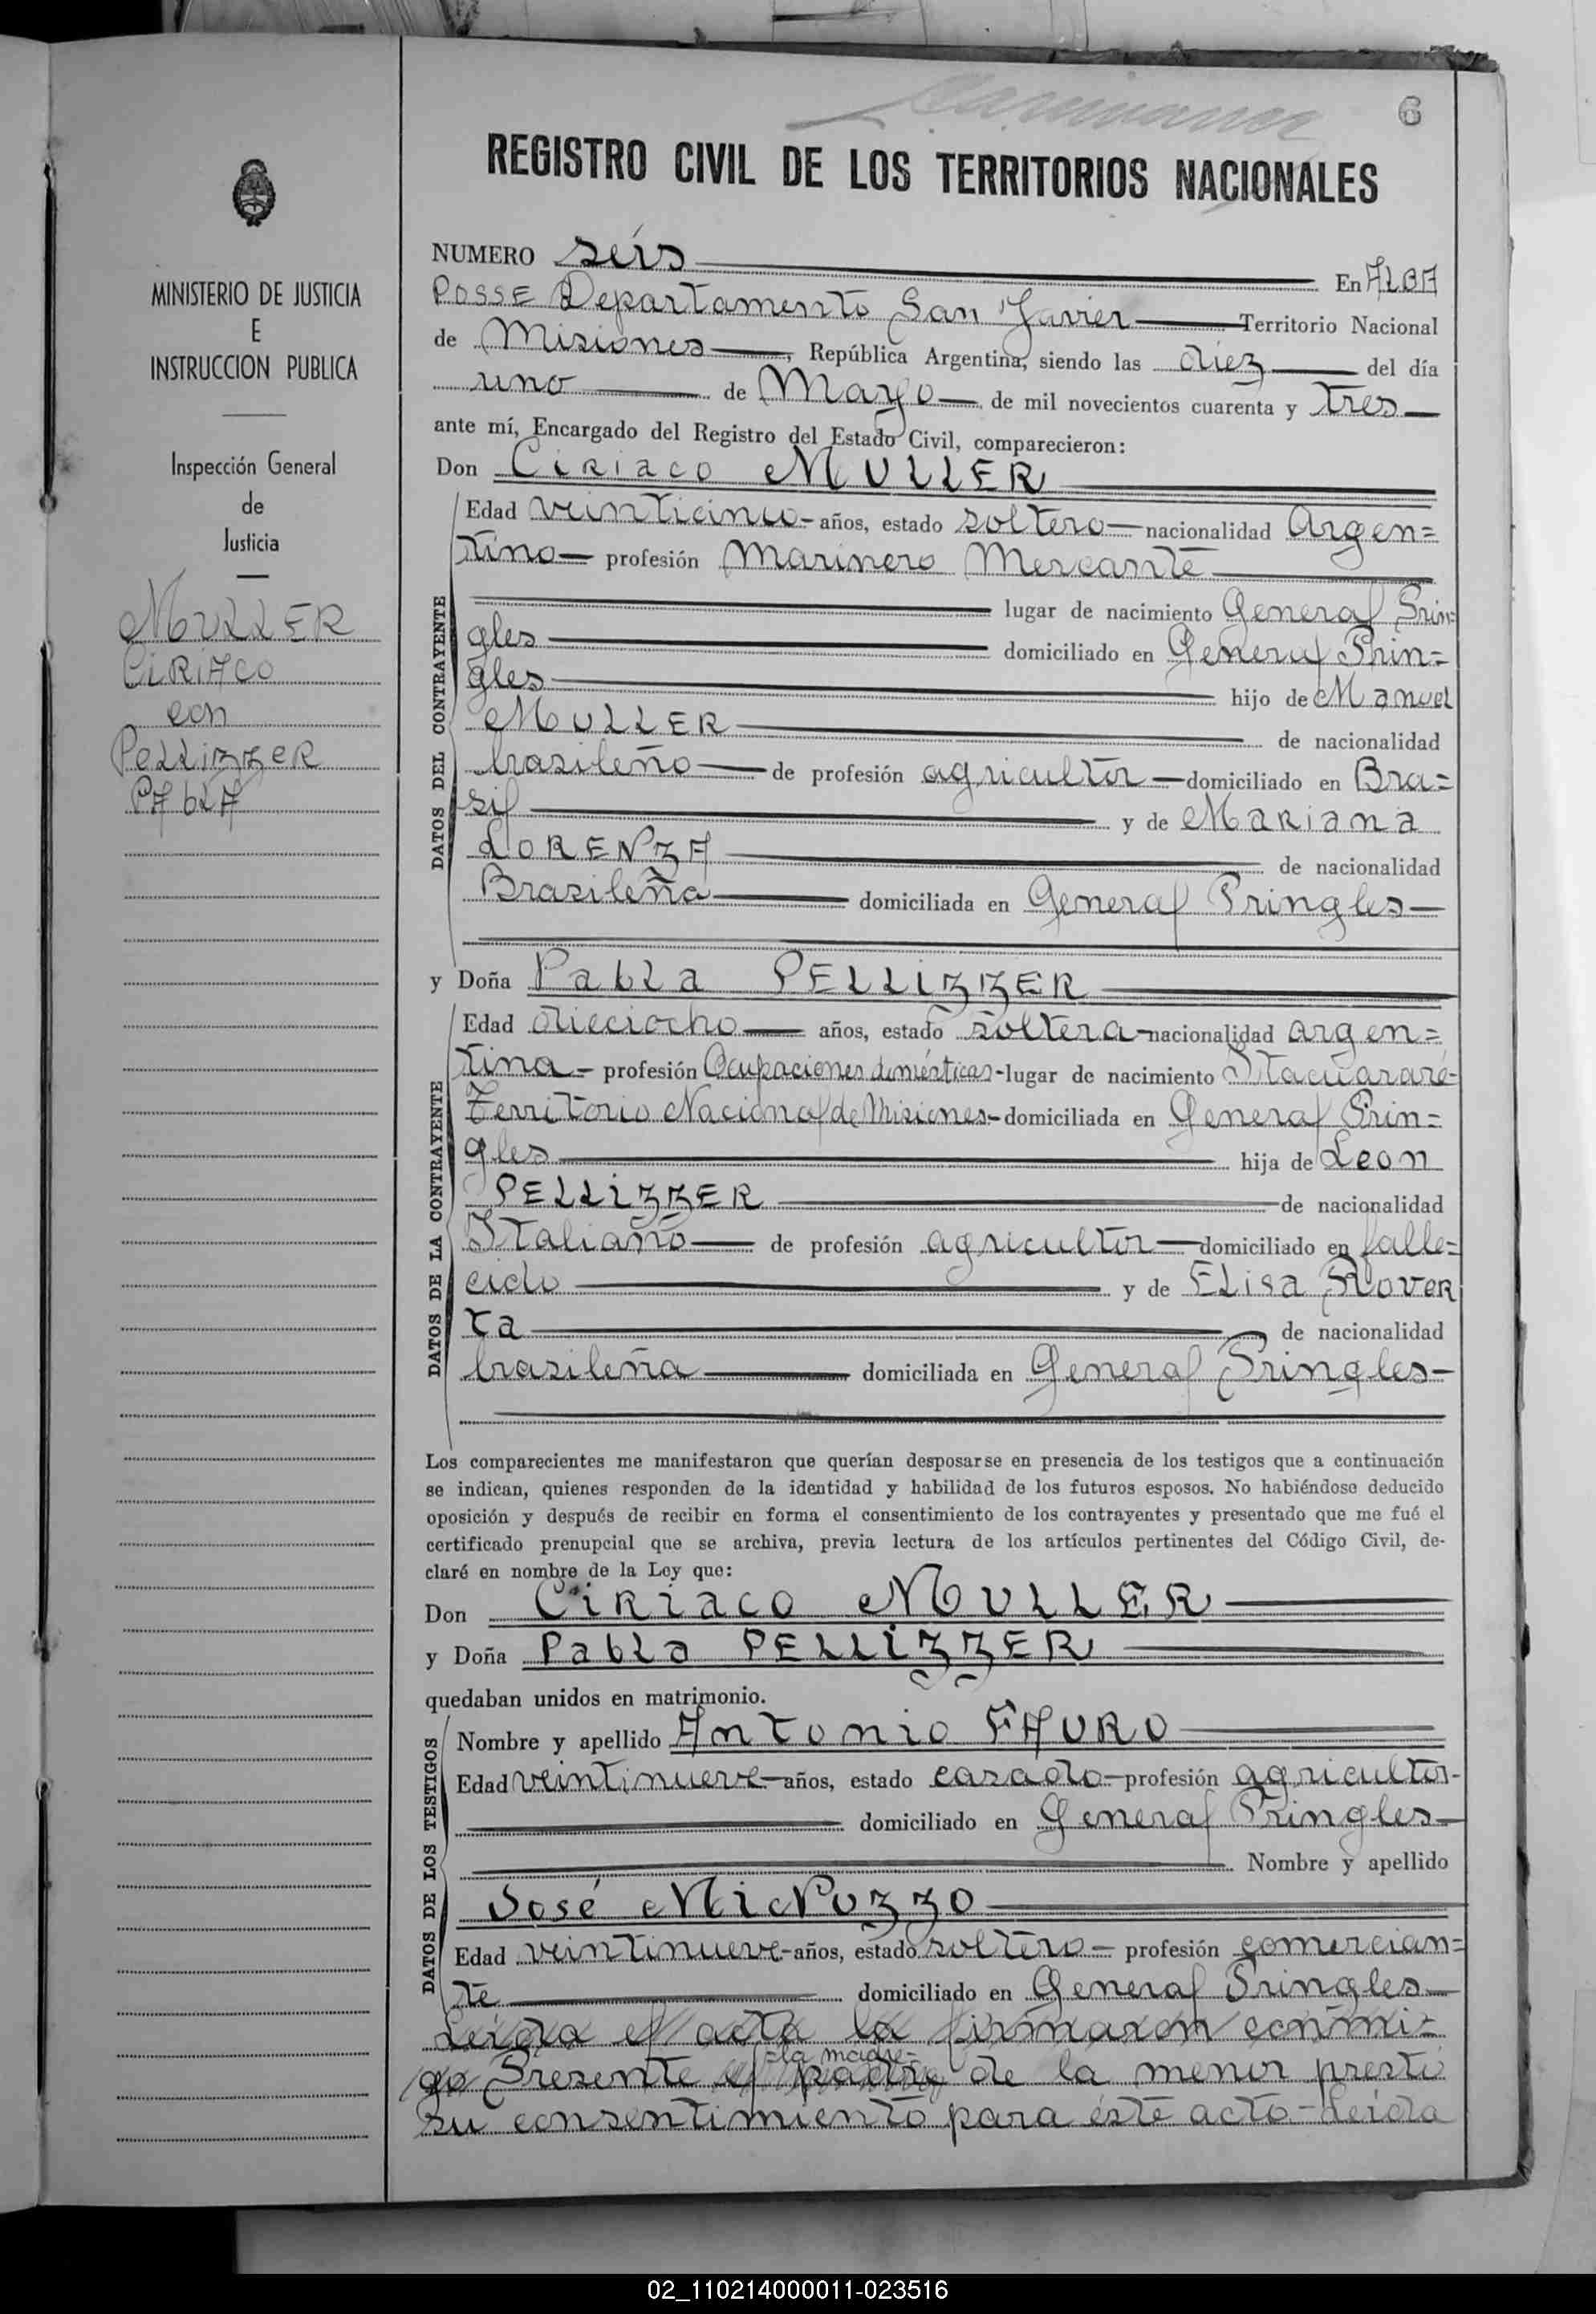 6
REGISTRO CIVIL DE LOS TERRITORIOS NACIONALES
MINISTERIO DE JUSTICIA
E
INSTRUCCION PUBLICA
Inspección General
de
Justicia
MULLER
CIRIACO
con
PELLIZZER
PABLA
NUMERO seis En ALBA
POSSE Departamento San Javier Territorio Nacional
de Misiones, República Argentina, siendo las diez del día
uno de Mayo de mil novecientos cuarenta y tres
ante mí, Encargado del Registro del Estado Civil, comparecieron:
Don Ciriaco MULLER
DATOS DEL CONTRAYENTE
Edad veinticinco años, estado soltero nacionalidad Argen=
tino profesión Marinero Mercante
lugar de nacimiento General Prin=
gles domiciliado en General Prin=
gles hijo de Manuel
MULLER de nacionalidad
brasileño de profesión agricultor domiciliado en Bra=
sil y de Mariana
LORENZA de nacionalidad
Brasileña domiciliada en General Pringles
y Doña Pabla PELLIZZER
DATOS DE LA CONTRAYENTE
Edad dieciocho años, estado soltera nacionalidad argen=
tina profesión Ocupaciones domésticas lugar de nacimiento Itacuararé
Territorio Nacional de Misiones domiciliada en General Prin=
gles hija de Leon
PELLIZZER de nacionalidad
Italiano de profesión agricultor domiciliado en falle=
cido y de Elisa Rover
ta de nacionalidad
brasileña domiciliada en General Pringles
Los comparecientes me manifestaron que querían desposarse en presencia de los testigos que a continuación
se indican, quienes responden de la identidad y habilidad de los futuros esposos. No habiéndose deducido
oposición y después de recibir en forma el consentimiento de los contrayentes y presentado que me fué el
certificado prenupcial que se archiva, previa lectura de los artículos pertinentes del Código Civil, de-
claré en nombre de la Ley que:
Don Ciriaco MULLER
y Doña Pabla PELLIZZER
quedaban unidos en matrimonio.
DATOS DE LOS TESTIGOS
Nombre y apellido Antonio FAURO
Edad veintinueve años, estado casado profesión agricultor
domiciliado en General Pringles
Nombre y apellido
José MiNuzzo
Edad veintinueve años, estado soltero profesión comercian=
te domiciliado en General Pringles
Leida el acta la firmaron conmi=
la madre
go Presente el padre de la menor prestó
su consentimiento para éste acto - Leida
02_110214000011-023516